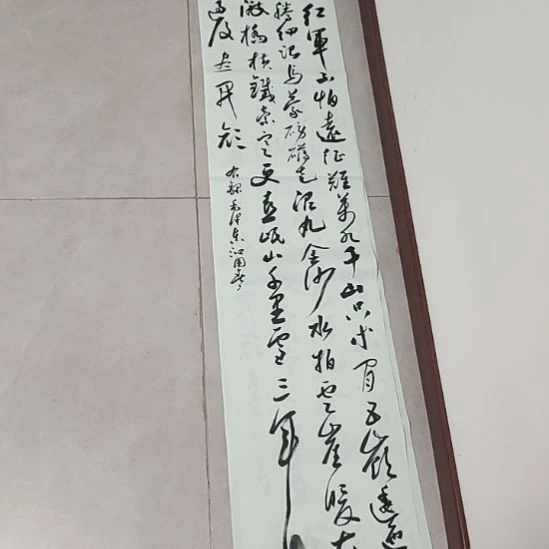 红軍不怕遠征難萬水千山只等閒五嶺逶迤
騰細浪烏蒙磅礴走泥丸金沙水拍雲崖暖大
渡橋橫鐵索寒更喜岷山千里雪三軍
過後盡開顏
右錄毛澤東沁園春